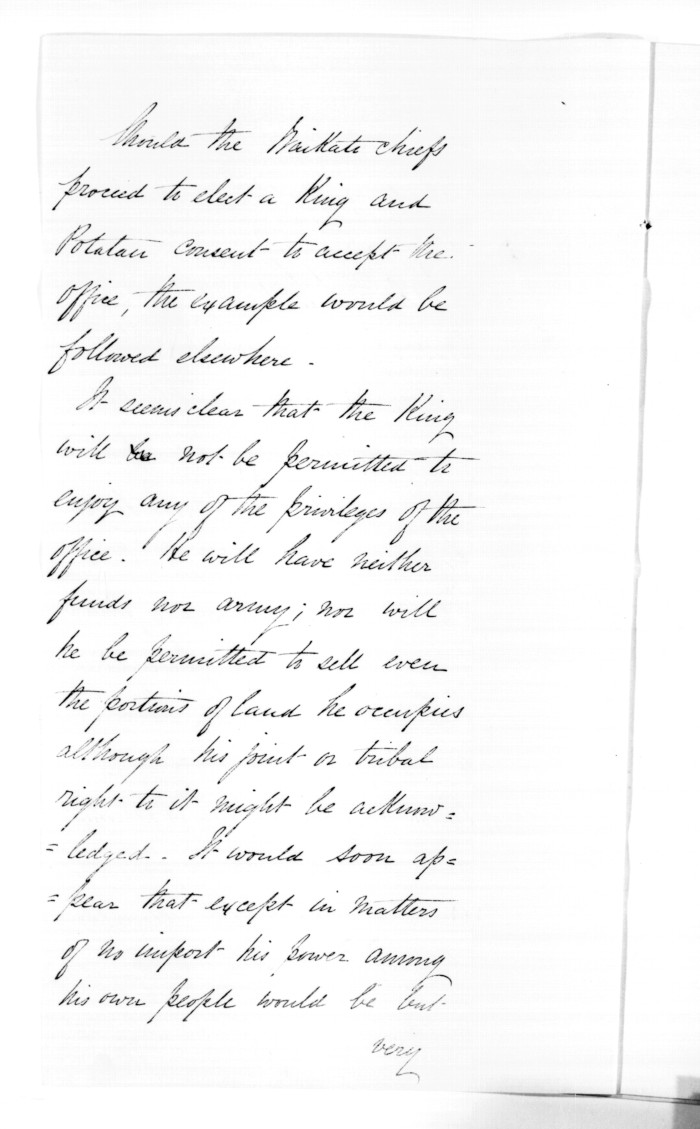 Should the Waikato chiefs
proceed to elect a King and
Potatau consent to accept the
office, the example would be
followed elsewhere -
It seems clear that the King
will not be permitted to
enjoy any of the privileges of the
office. He will have neither
funds nor army; nor will
he be permitted to sell even
the portions of land he occupies
although his joint or tribal
right to it might be acknow=
=ledged. It would soon ap=
=pear that except in matters
of no import his power among
his own people would be but
very